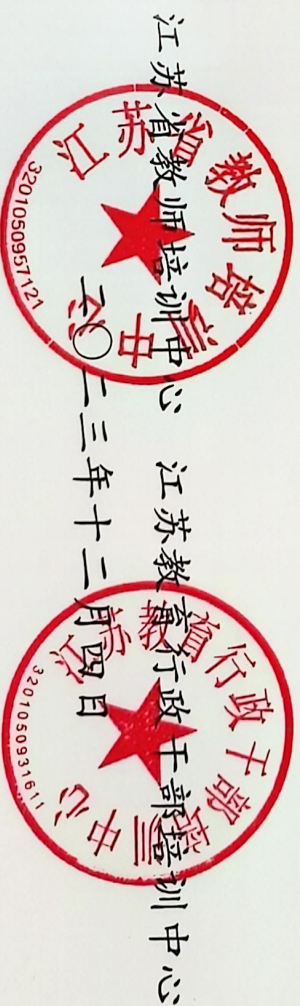 江苏省教师培训中心 江苏教育行政干部培训中心
二〇二三年十二月四日
江苏省教师培训中心
3201050957121
江苏教育行政干部培训中心
3201050931611